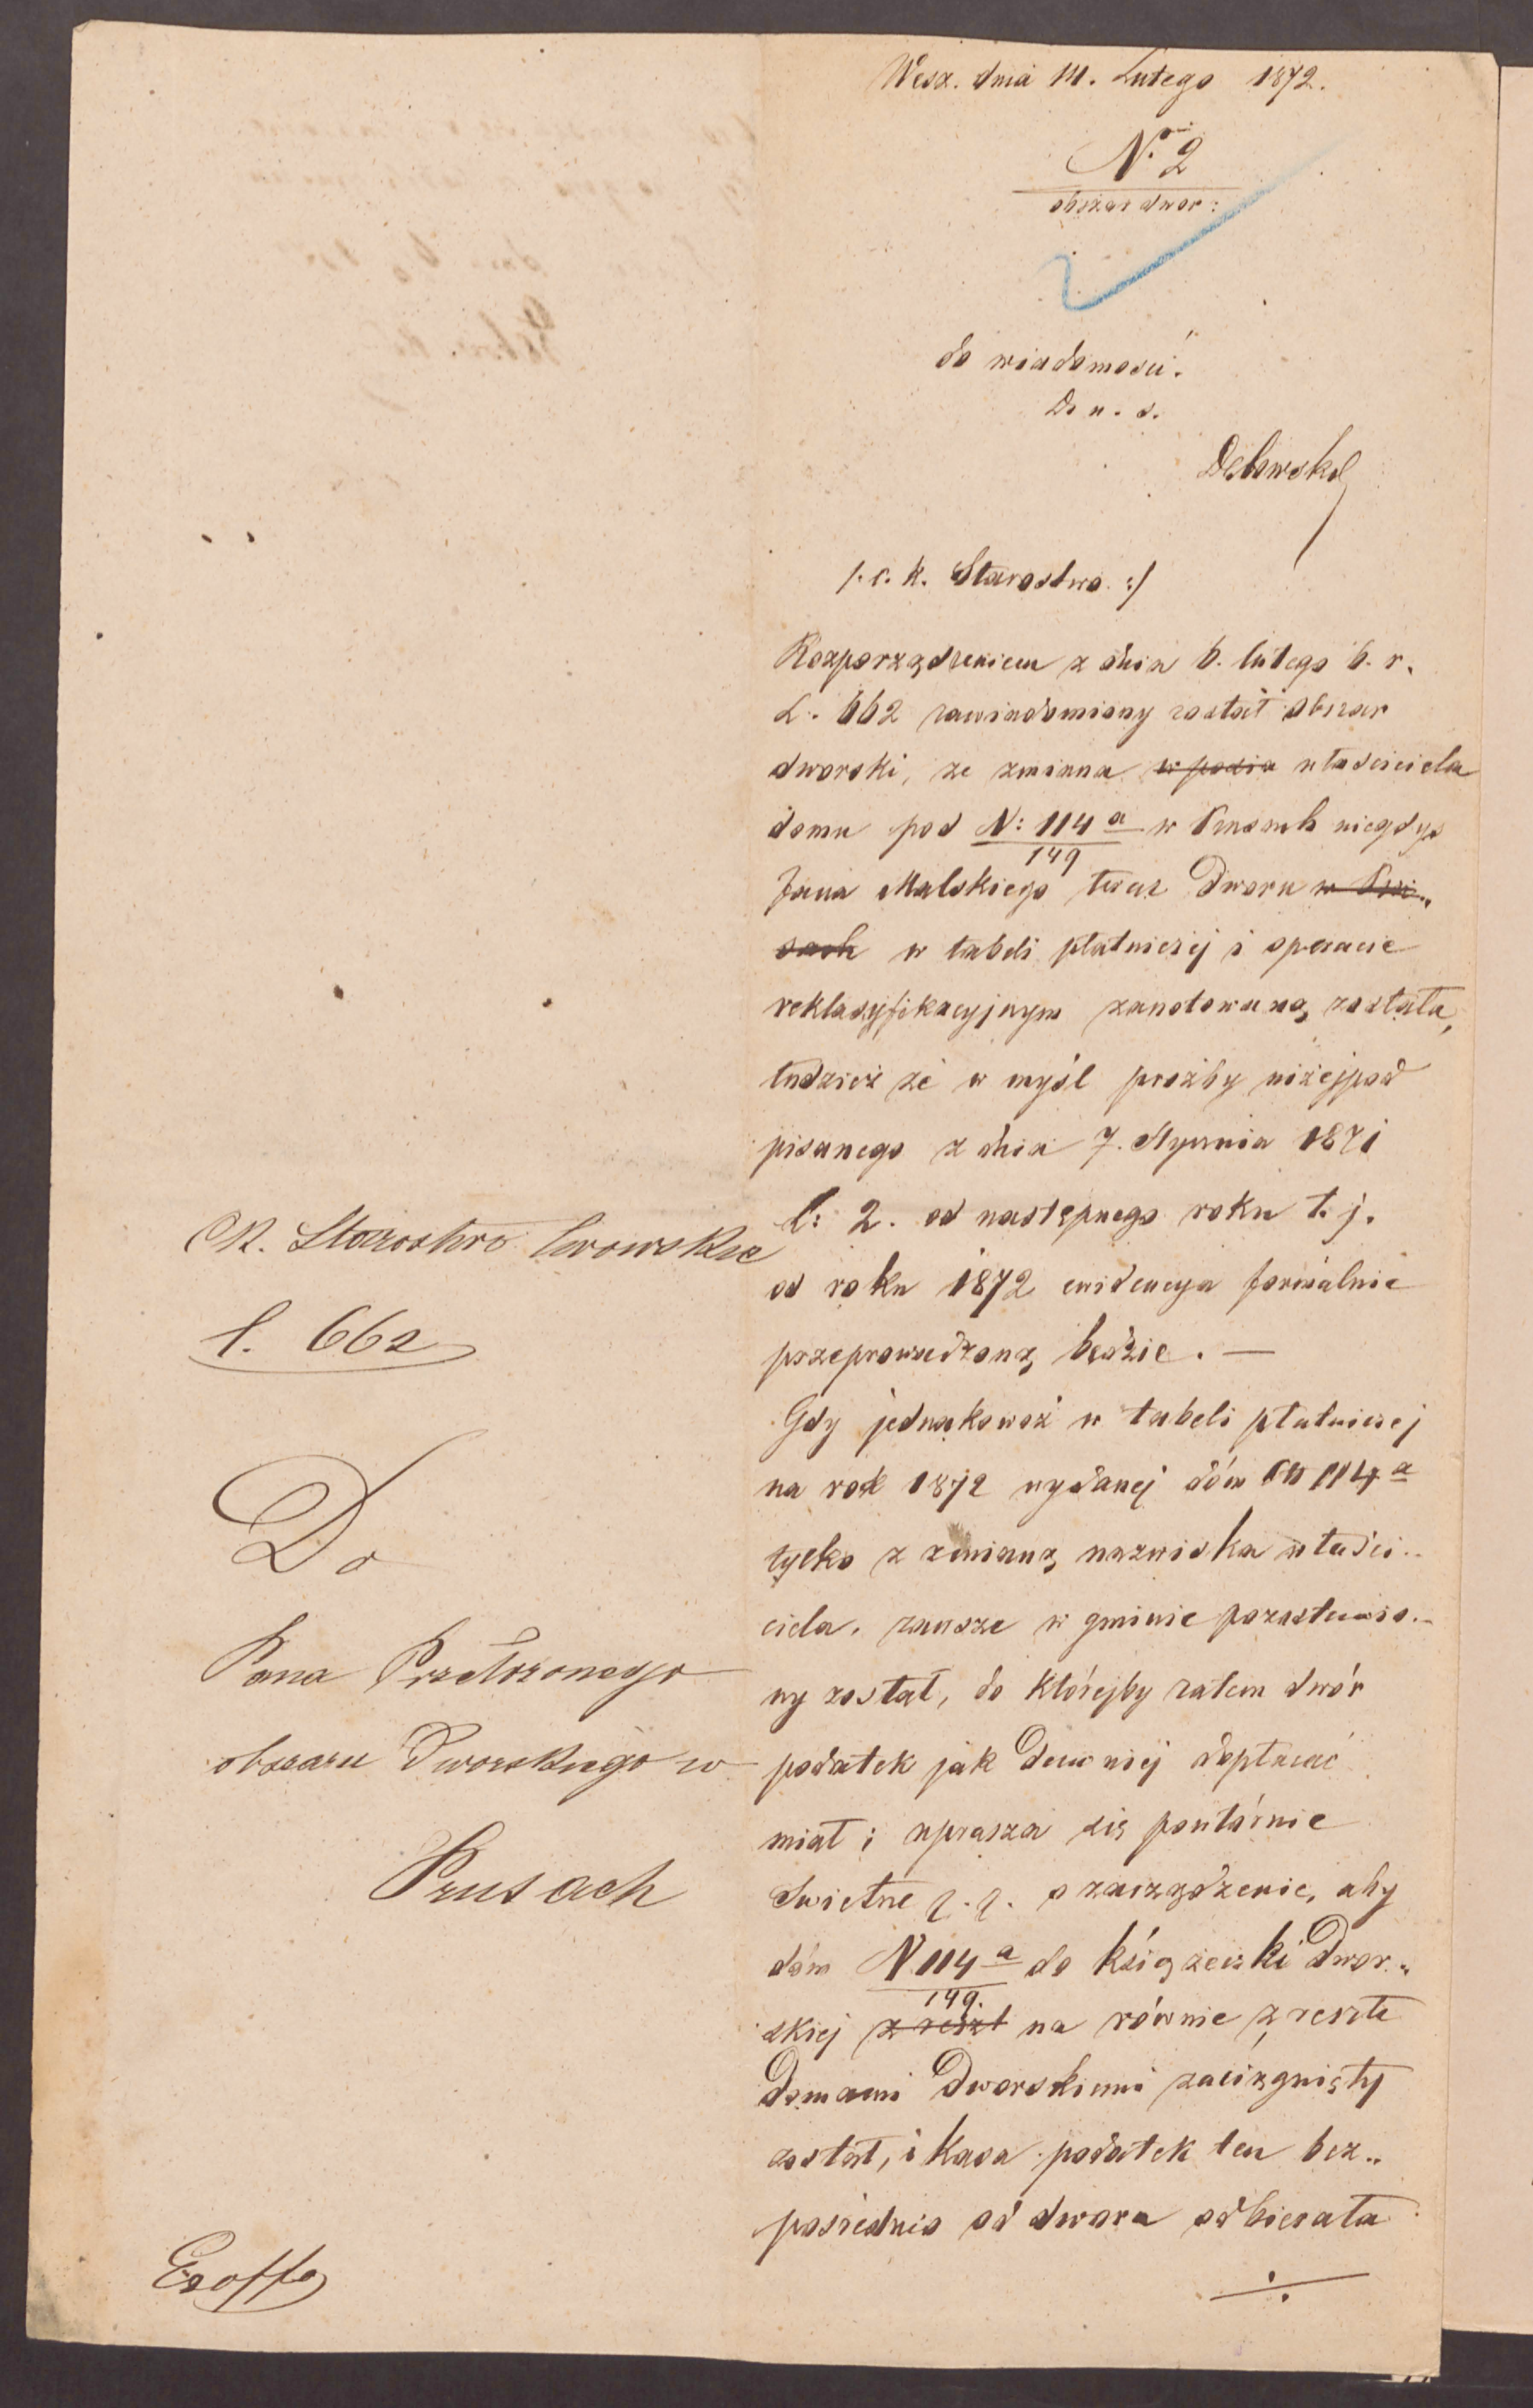 Wesz. dnia 14. Lutego 1872.
N° 2
obszar dwor:
do wiadomości.
Do n. s.
/. c. k. Starostwo :/
Rozporządzeniem z dnia 6. lutego b. r.
L. 662 zawiadomiony został obszar
dworski, że zmiana w posia właściciela
domu pod N: 114 a/149 w Prusach niegdyś
Jana Malskiego teraz Dworu w Pru„
sach w tabeli płatniczéj i operacie
reklasyfikacyjnym zanotowaną została,
tudzież że w myśl prośby niżejpod
pisanego z dnia 7. Stycznia 1871
l: 2. od następnego roku t. j.
od roku 1872 ewidencya formalnie
przeprowadzoną będzie. —
Gdy jednakowoż w tabeli płatniczej
na rok 1872 wydanej dóm 114 a
tylko z zmianą nazwiska właści..
ciela, zawsze w gminie pozostawio..
ny został, do którejby zatem dwór
podatek jak dawniej dopłacać
miał; uprasza się powtórnie
Świetne q. q. o zarządzenie, aby
dóm N 114 a/149. do książeczki Dwor„
skiej z reszt na równie z reszte
Domami Dworskiemi zaciągnięty
został, i Kasa podatek ten bez„
pośrednio od dworu odbierała
÷
CK. Starostwo lwowskie
l. 662
Do
Pana Przełożonego
obszaru Dworskiego w
Prusach
Exoffo